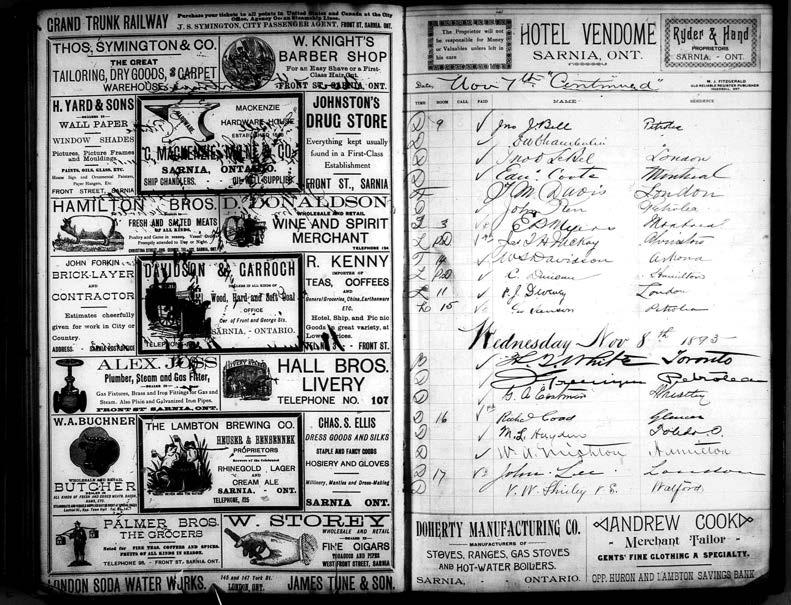 GRAND TRUNK RAILWAY
Purchase your tickets to all points in United States and Canada at the City
Office, Agency Ocean Steamship Lines.
J. S. SYMINGTON, CITY PASSENGER AGENT, FRONT ST, SARNIA, ONT.
THOS. SYMINGTON & CO.
THE GREAT
TAILORING, DRY GOODS, & CARPET
WAREHOUSE
W. KNIGHT'S
BARBER SHOP
For an Easy Shave or a First-
Class Hair Cut
FRONT ST., SARNIA, ONT.
H. YARD & SONS
DEALERS IN
WALL PAPER
WINDOW SHADES
Pictures, Picture Frames
and Mouldings
PAINTS, OILS, GLASS, ETC.
House Sign and Ornamental Painters,
Paper Hangers, Etc.
FRONT STREET, SARNIA
MACKENZIE
HARDWARE HOUSE
ESTABLISHED
C. MACKENZIE, MILNE & CO.
SARNIA, ONTARIO.
SHIP CHANDLERS. OIL WELL SUPPLIES
JOHNSTON'S
DRUG STORE
Everything kept usually
found in a First-Class
Establishment
FRONT ST., SARNIA
HAMILTON BROS.
FRESH AND SALTED MEATS
OF ALL KINDS,
Poultry and Game in season. Vessel Orders
Promptly attended to Day or Night.
D. DONALDSON
WHOLESALE AND RETAIL
WINE AND SPIRIT
MERCHANT
TELEPHONE 124
JOHN FORKIN
BRICK-LAYER
AND
CONTRACTOR
Estimates cheerfully
given for work in City or
Country.
ADDRESS - SARNIA POST OFFICE
DAVIDSON & CARROCH
DEALERS IN ALL KINDS OF
Wood, Hard and Soft Coal
OFFICE
Cor of Front and George Sts.
SARNIA, - ONTARIO.
TELEPHONE
R. KENNY
IMPORTER OF
TEAS, COFFEES
AND
General Groceries, China, Earthenware
ETC.
Hotel, Ship, and Pic nic
Goods in great variety, at
Lowest Prices.
FRONT ST.
ALEX. JOSS
Plumber, Steam and Gas Fitter,
DEALER IN
Gas Fixtures, Brass and Iron Fittings for Gas and
Steam. Also Plain and Galvanized Iron Pipes.
FRONT ST SARNIA, ONT.
HALL BROS.
LIVERY
TELEPHONE NO. 107
W. A. BUCHNER
WHOLESALE AND RETAIL
BUTCHER
DEALER IN
ALL KINDS OF FRESH AND CURED MEATS, BACON,
HAMS, ETC.
THE LAMBTON BREWING CO.
HEUSER & BENBENNEK
PROPRIETORS
Brewers of the Celebrated
RHINEGOLD LAGER
AND
CREAM ALE
SARNIA, ONT.
TELEPHONE, 125
CHAS. S. ELLIS
DRESS GOODS AND SILKS
STAPLE AND FANCY GOODS
HOSIERY AND GLOVES
Millinery, Mantles and Dress-Making
SARNIA ONT.
PALMER BROS.
THE GROCERS
Noted for FINE TEAS, COFFEES AND SPICES.
FRUITS OF ALL KINDS IN SEASON.
TELEPHONE 98. - FRONT ST., SARNIA ONT.
W. STOREY
WHOLESALE AND RETAIL
DEALER IN
FINE CIGARS
TOBACCOS AND PIPES
WEST FRONT STREET, SARNIA
LONDON SODA WATER WORKS.
145 and 147 York St.
LONDON, ONT.
JAMES TUNE & SON.
The Proprietor will not
be responsible for Money
or Valuables unless left in
his care
HOTEL VENDOME
SARNIA, ONT.
Ryder & Hand
PROPRIETORS
SARNIA, - ONT.
Date, Nov 7th "Continued"
M. J. FITZGERALD
OLD RELIABLE REGISTER PUBLISHER
TIME ROOM CALL PAID NAME RESIDENCE
D 9 Jno J. Bell Petrolea
D Chamberlin
D London
D Coote Montreal
J M Davis London
John Petrolea
3 E D Myers Montreal
T H McKay
14 W S Davidson Arkona
C Duncan Hamilton
11 P J London
15 Petrolea
Wednesday Nov 8th 1893
White Toronto
D Petrolea
D G. A. Eastman
D 16 Coad Glencoe
D M. L. Hayden Toledo O.
D W. A. Hamilton
D 17 John Lee London
D V. W. Shirley Watford
DOHERTY MANUFACTURING CO.
MANUFACTURERS OF
STOVES, RANGES, GAS STOVES
AND HOT-WATER BOILERS.
SARNIA, - ONTARIO.
ANDREW COOK
Merchant Tailor
GENTS' FINE CLOTHING A SPECIALTY.
OPP. HURON AND LAMBTON SAVINGS BANK